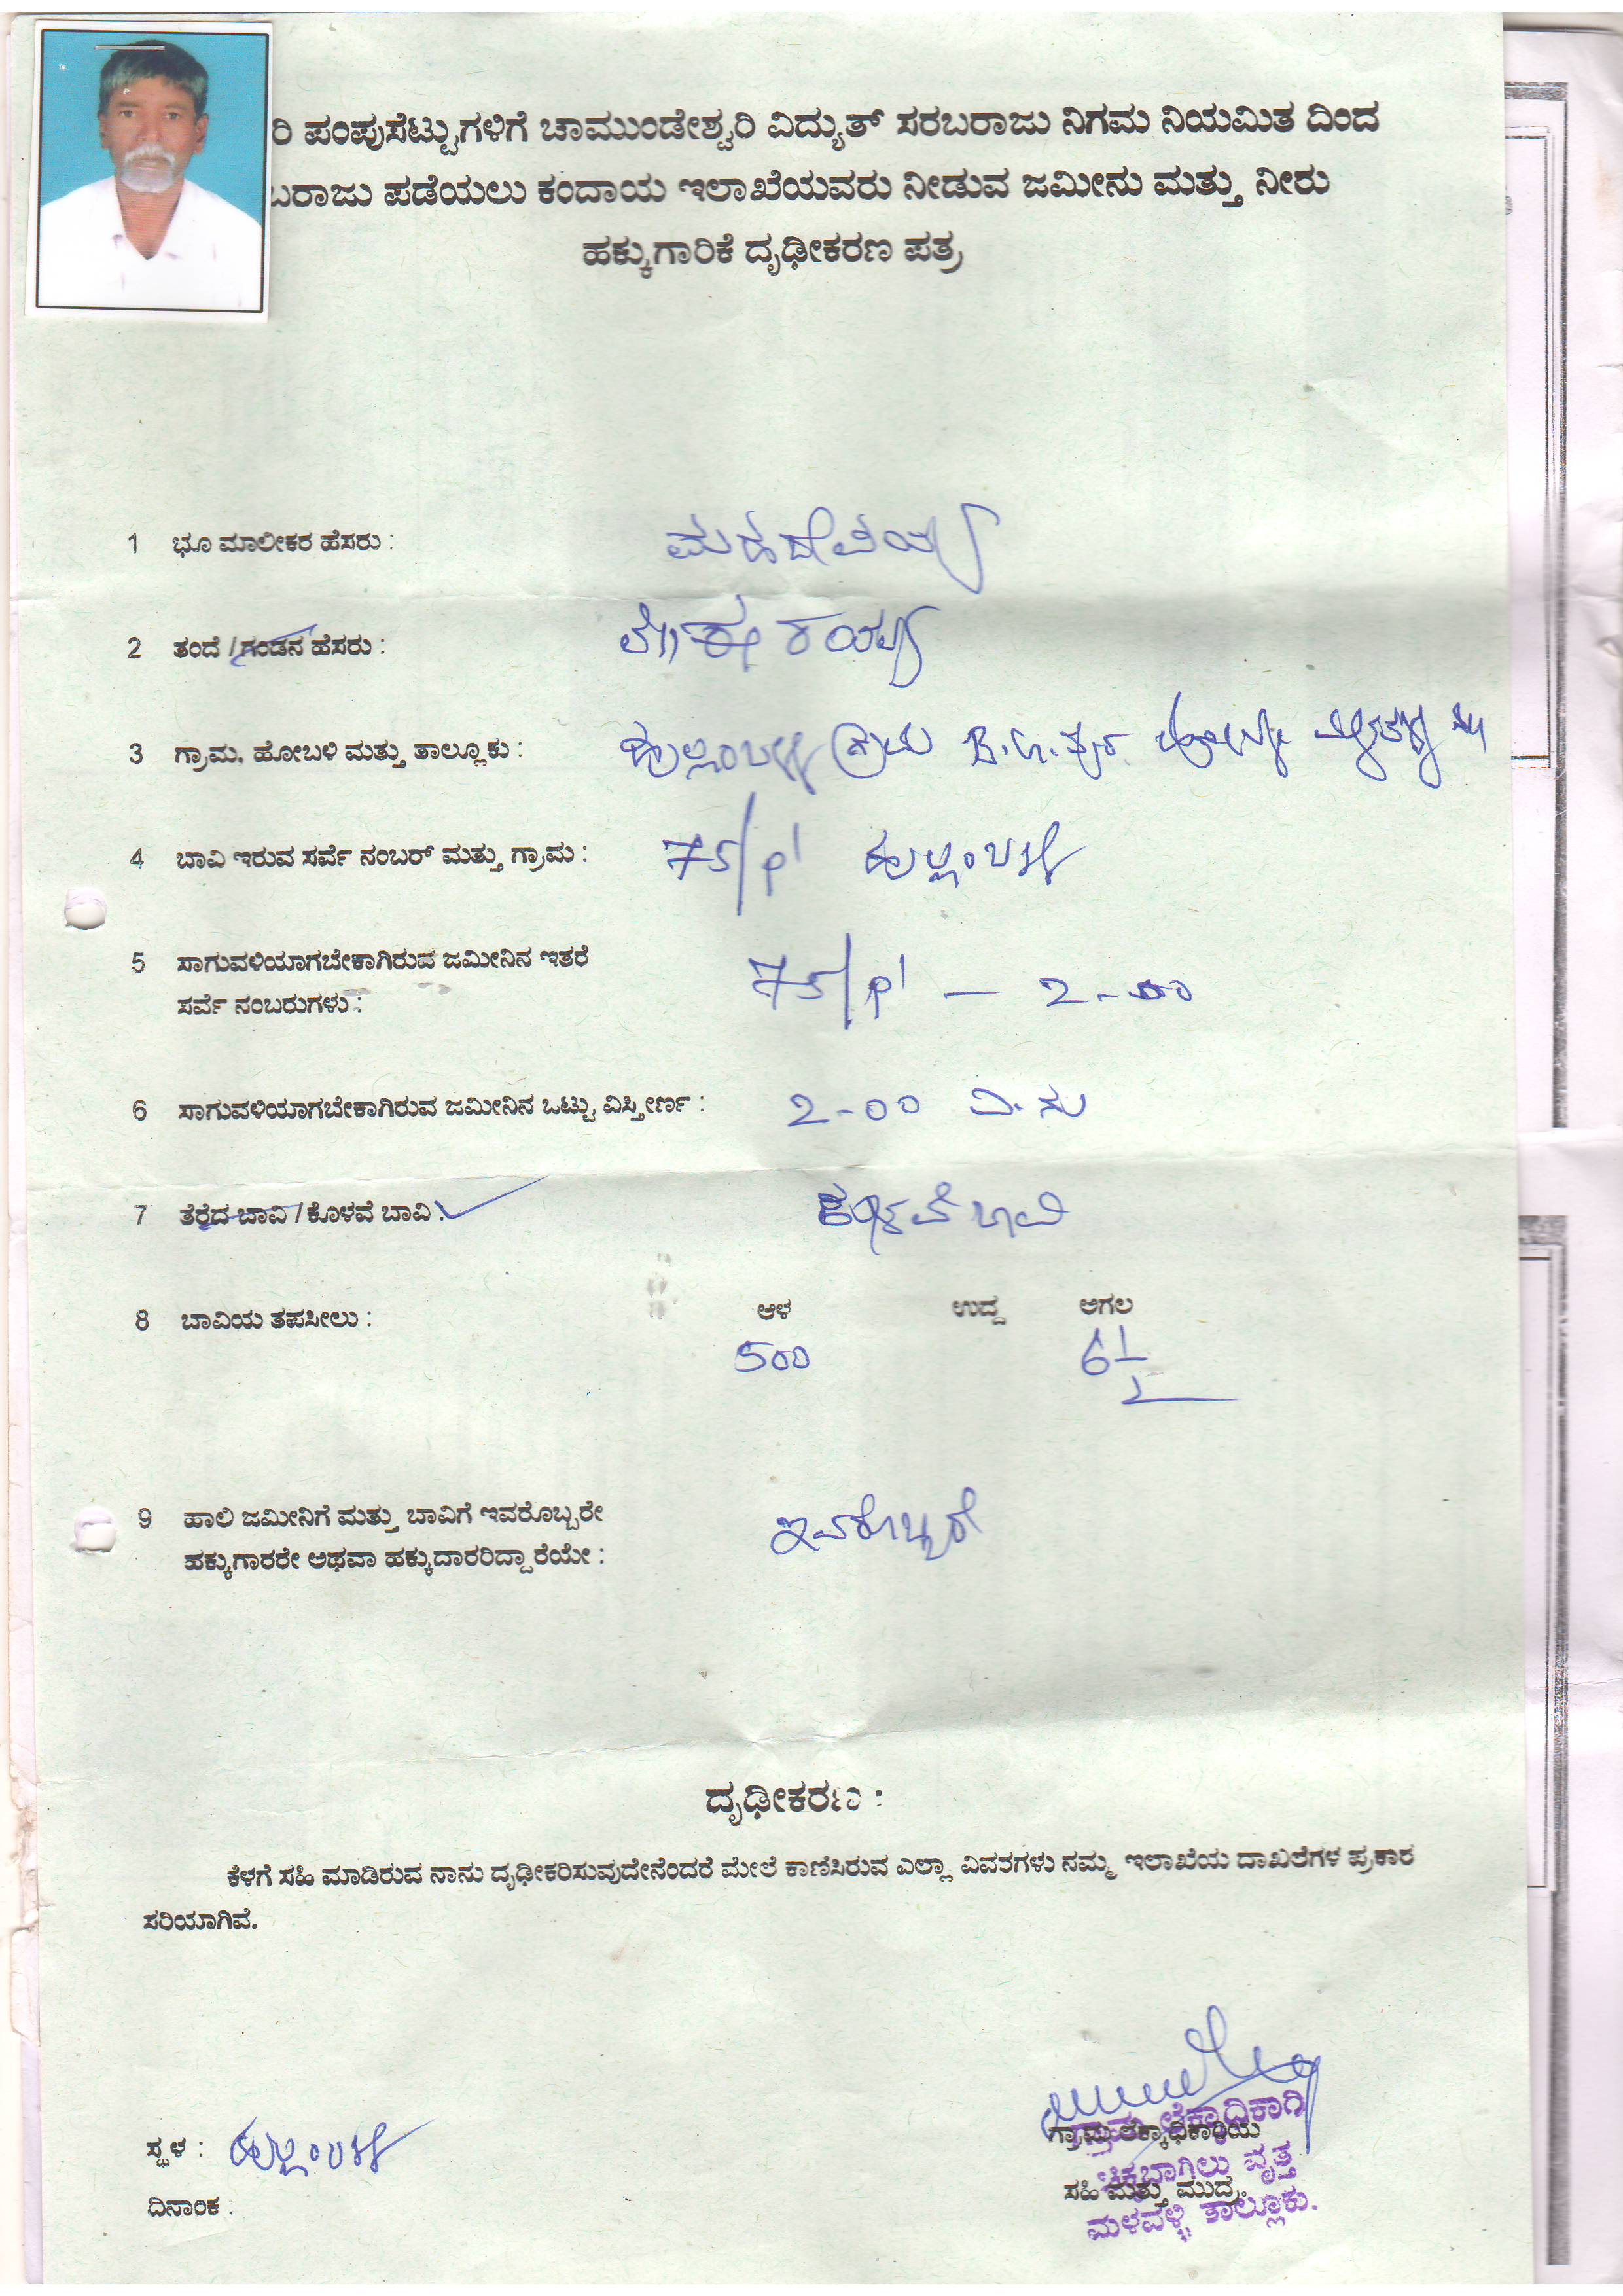 ರಿ ಪಂಪುಸೆಟ್ಟುಗಳಿಗೆ ಚಾಮುಂಡೇಶ್ವರಿ ವಿದ್ಯುತ್ ಸರಬರಾಜು ನಿಗಮ ನಿಯಮಿತ ದಿಂದ
ಬರಾಜು ಪಡೆಯಲು ಕಂದಾಯ ಇಲಾಖೆಯವರು ನೀಡುವ ಜಮೀನು ಮತ್ತು ನೀರು
ಹಕ್ಕುಗಾರಿಕೆ ದೃಢೀಕರಣ ಪತ್ರ
1 ಭೂ ಮಾಲೀಕರ ಹೆಸರು : ಮಹದೇವಯ್ಯ
2 ತಂದೆ / ಗಂಡನ ಹೆಸರು :
3 ಗ್ರಾಮ, ಹೋಬಳಿ ಮತ್ತು ತಾಲ್ಲೂಕು : ಹುಲ್ಲಂಬಳ್ಳಿ ಗ್ರಾಮ B.G.ಪುರ
4 ಬಾವಿ ಇರುವ ಸರ್ವೆ ನಂಬರ್ ಮತ್ತು ಗ್ರಾಮ : 75/P1 ಹುಲ್ಲಂಬಳ್ಳಿ
5 ಸಾಗುವಳಿಯಾಗಬೇಕಾಗಿರುವ ಜಮೀನಿನ ಇತರೆ
ಸರ್ವೆ ನಂಬರುಗಳು : 75/P1 — 2-00
6 ಸಾಗುವಳಿಯಾಗಬೇಕಾಗಿರುವ ಜಮೀನಿನ ಒಟ್ಟು ವಿಸ್ತೀರ್ಣ : 2-00 ಎ.ಗು
7 ತೆರೆದ ಬಾವಿ / ಕೊಳವೆ ಬಾವಿ : ಕೊಳವೆ ಬಾವಿ
8 ಬಾವಿಯ ತಪಸೀಲು : ಆಳ ಉದ್ದ ಅಗಲ
500 6½
9 ಹಾಲಿ ಜಮೀನಿಗೆ ಮತ್ತು ಬಾವಿಗೆ ಇವರೊಬ್ಬರೇ
ಹಕ್ಕುಗಾರರೇ ಅಥವಾ ಹಕ್ಕುದಾರರಿದ್ದಾರೆಯೇ : ಇವರೊಬ್ಬರೆ
ದೃಢೀಕರಣ :
ಕೆಳಗೆ ಸಹಿ ಮಾಡಿರುವ ನಾನು ದೃಢೀಕರಿಸುವುದೇನೆಂದರೆ ಮೇಲೆ ಕಾಣಿಸಿರುವ ಎಲ್ಲಾ ವಿವರಗಳು ನಮ್ಮ ಇಲಾಖೆಯ ದಾಖಲೆಗಳ ಪ್ರಕಾರ
ಸರಿಯಾಗಿವೆ.
ಗ್ರಾಮ ಲೆಕ್ಕಾಧಿಕಾರಿ
ಸ್ಥಳ : ಹುಲ್ಲಂಬಳ್ಳಿ ಗ್ರಾಮ ಲೆಕ್ಕಾಧಿಕಾರಿಯ
ಚಿಕ್ಕಬಾಗಿಲು ವೃತ್ತ
ಸಹಿ ಮತ್ತು ಮುದ್ರೆ
ದಿನಾಂಕ :
ಮಳವಳ್ಳಿ ತಾಲ್ಲೂಕು.